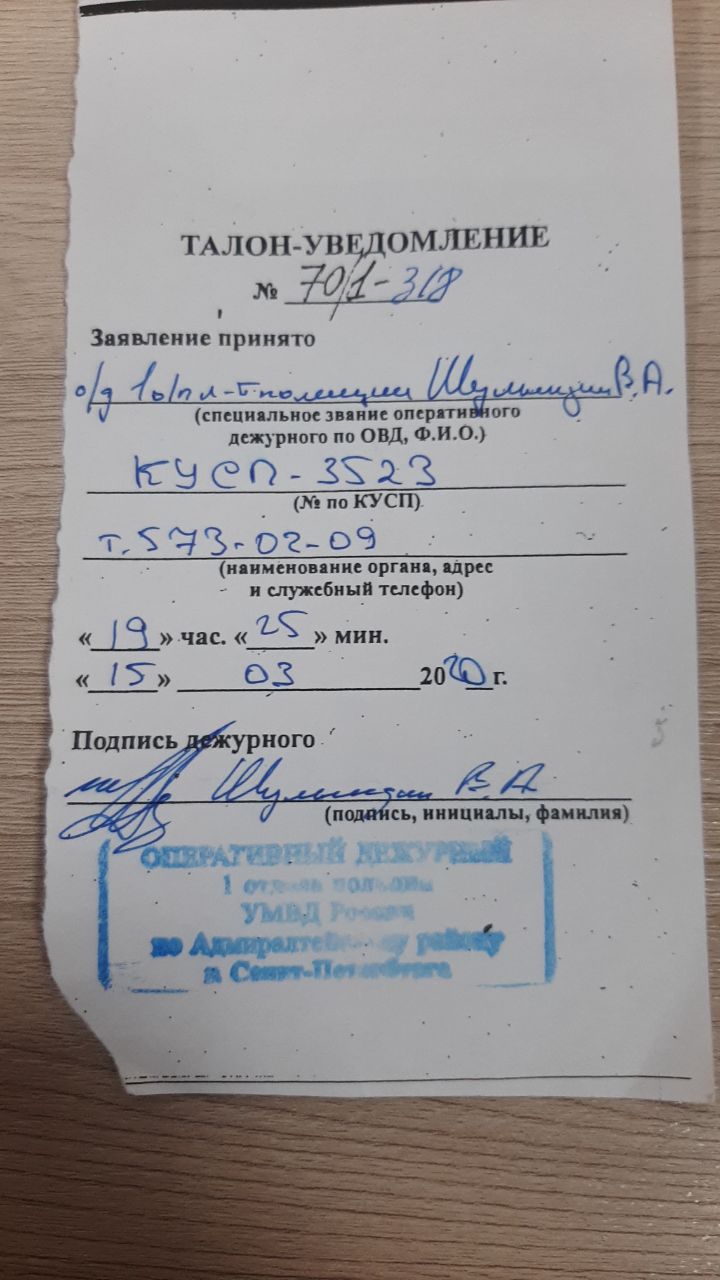 ТАЛОН-УВЕДОМЛЕНИЕ
№ 70/1-318
Заявление принято
о/д 1 о/п п-к полиции В.А.
(специальное звание оперативного
дежурного по ОВД, Ф.И.О.)
КУСП-3523
(№ по КУСП)
т. 573-02-09
(наименование органа, адрес
и служебный телефон)
«19» час. «25» мин.
«15» 03 2020 г.
Подпись дежурного
В.А.
(подпись, инициалы, фамилия)
ОПЕРАТИВНЫЙ ДЕЖУРНЫЙ
1 отдела полиции
УМВД России
по Адмиралтейскому району
г. Санкт-Петербурга